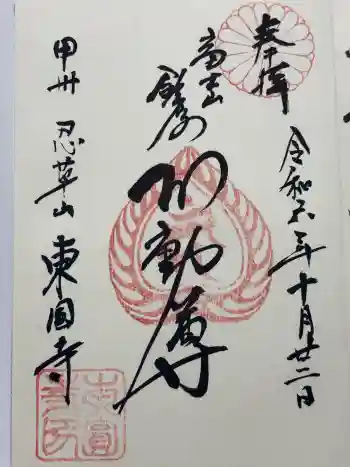 奉拝
令和六年十月廿二日
富士山
飯縄
不動尊
甲州 忍草山 東圓寺